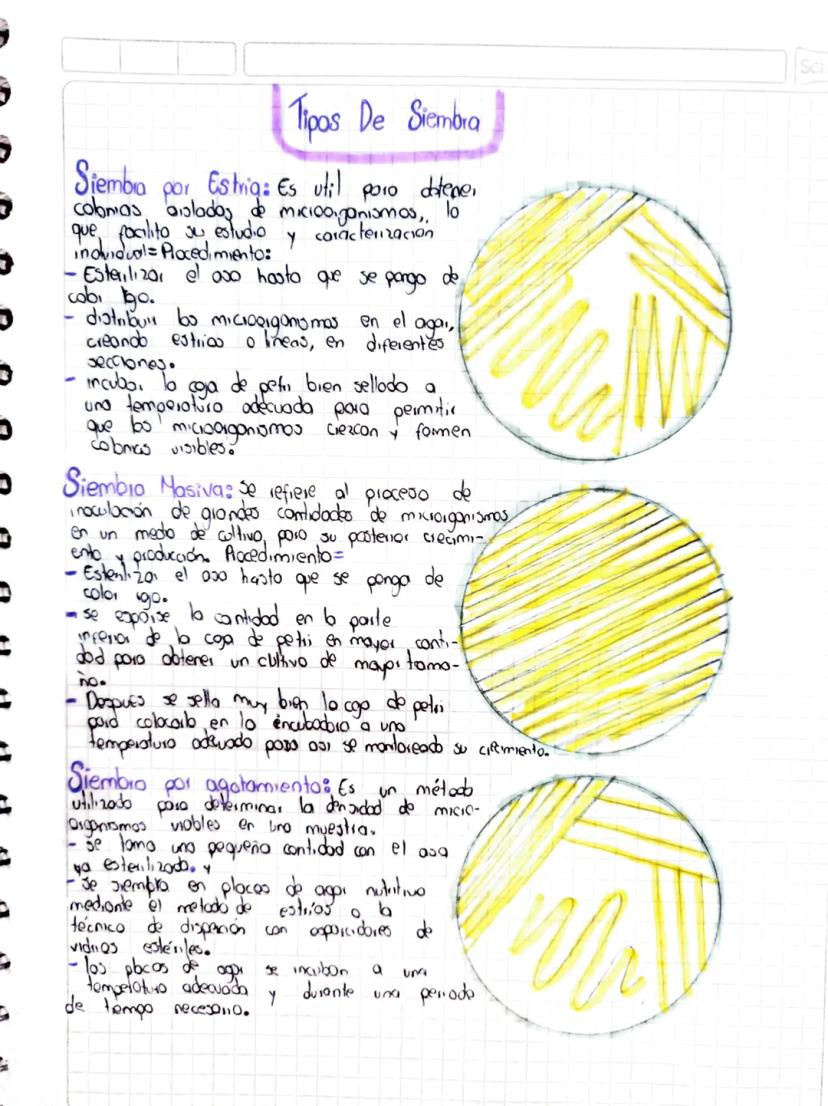 Sci
Tipos De Siembra
Siembra por Estria: Es util para obtener
colonias aisladas de microorganismos, lo
que facilita su estudio y caracterización
individual= Procedimiento:
- Esterilizar el asa hasta que se ponga de
color rojo.
- distribuir los microorganismos en el agar,
creando estrias o lineas, en diferentes
secciones.
- incubar la caja de petri bien sellada a
una temperatura adecuada para permitir
que los microorganismos crezcan y formen
colonias visibles.
Siembra Masiva: Se refiere al proceso de
inoculación de grandes cantidades de microorganismos
en un medio de cultivo, para su posterior crecimi-
ento y producción. Procedimiento=
- Esterilizar el asa hasta que se ponga de
color rojo.
- se esparse la cantidad en la parte
inferior de la caja de petri en mayor canti-
dad para obtener un cultivo de mayor tama-
ño.
- Después se sella muy bien la caja de petri
para colocarla en la incubadora a una
temperatura adecuada para asi se monitoreado su crecimiento.
Siembra por agotamiento: Es un método
utilizado para determinar la densidad de micro-
organismos viables en una muestra.
- se toma una pequeña cantidad con el asa
ya esterilizada. y
- se siembra en placas de agar nutritivo
mediante el metodo de estrías o la
técnica de dispersión con esparcidores de
vidrios estériles.
- las placas de agar se incuban a una
temperatura adecuada y durante una periodo
de tiempo necesario.